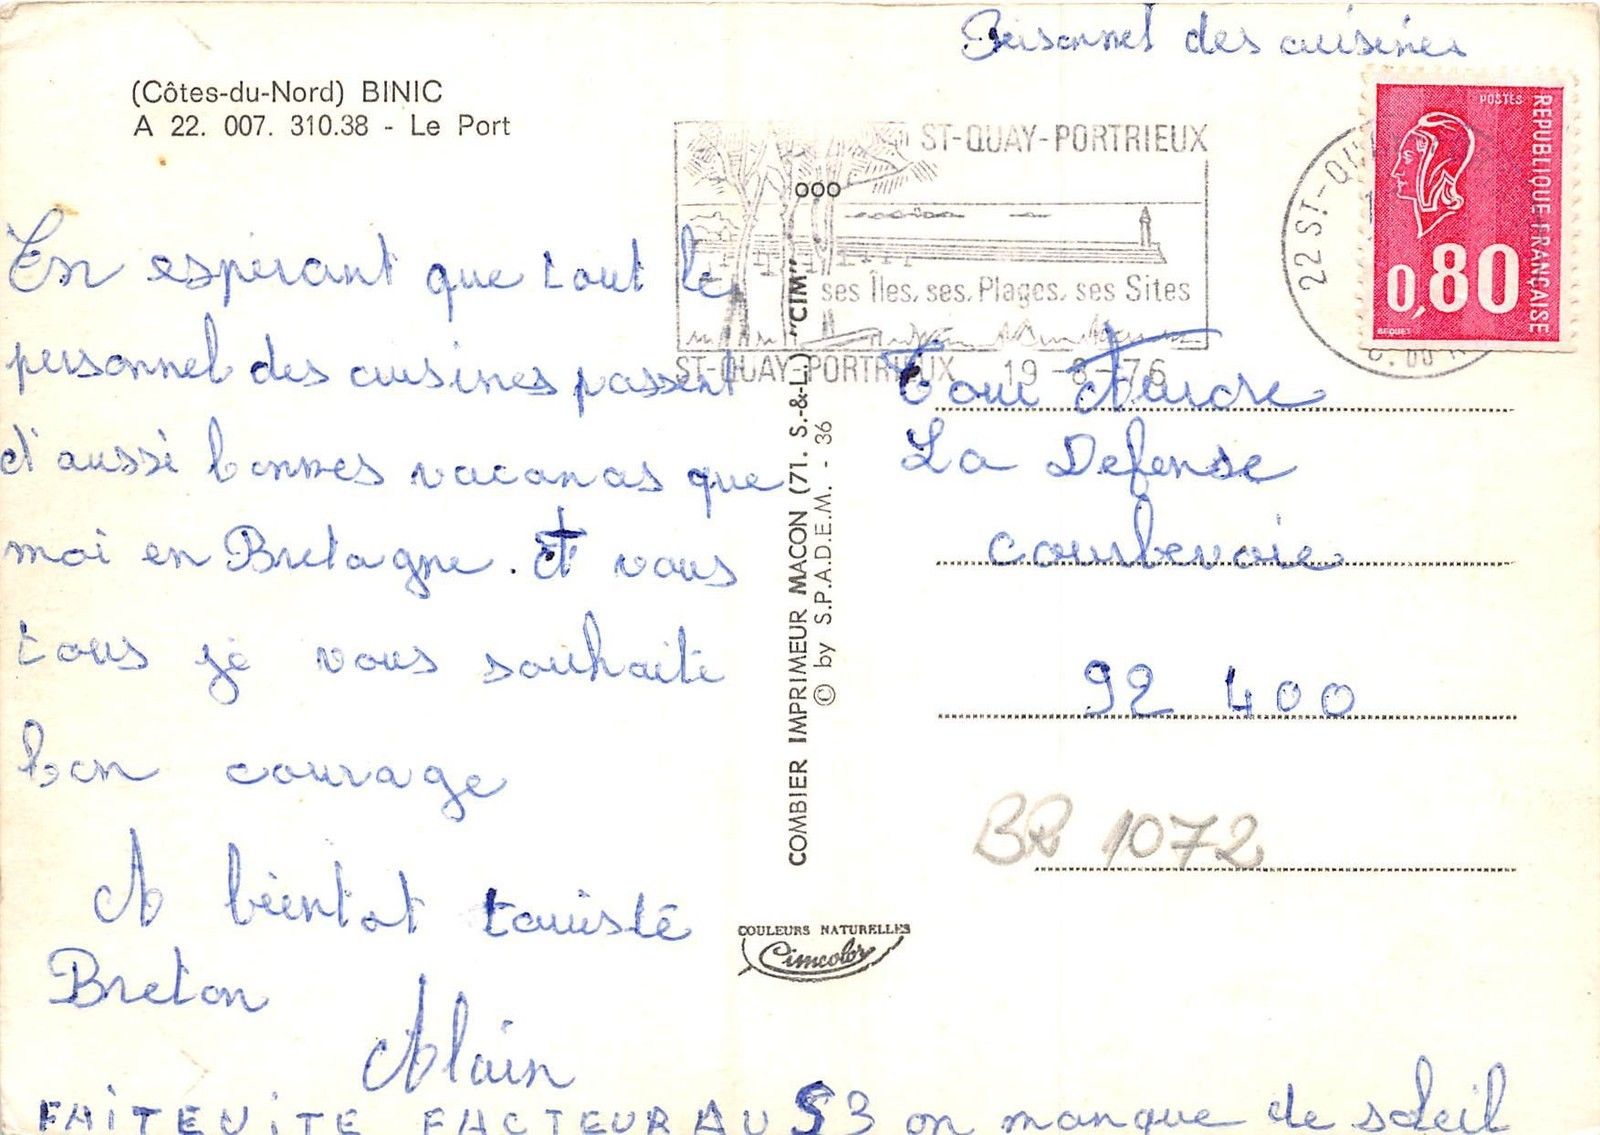 Personnel des cuisines
(Côtes-du-Nord) BINIC
A 22. 007. 310.38 - Le Port
En esperant que tout le
personnel des cuisines passent
d'aussi bonnes vacances que
moi en Bretagne. Et vous
tous je vous souhaite
bon courage
A bientot touriste
Breton
Alain
FAITE VITE FACTEUR AU 53 on manque de soleil
ST-QUAY-PORTRIEUX
ses Îles, ses Plages, ses Sites
ST-QUAY-PORTRIEUX 19-8-76
COMBIER IMPRIMEUR MACON (71. S.-&-L.) "CIM"
© by S.P.A.D.E.M. - 36
COULEURS NATURELLES
Cimcolor
22 ST-QU
POSTES
REPUBLIQUE FRANÇAISE
0,80
BEQUET
Tour Aurore
La Defense
courbevoie
92 400
BR 1072